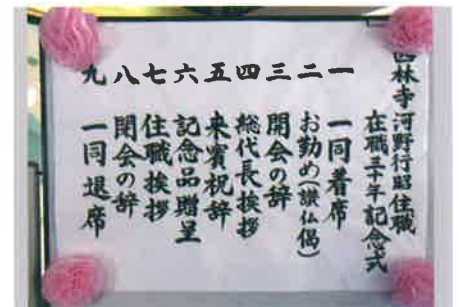 西林寺河野行昭住職
在職三十年記念式
一 一同着席
二 お勤め(讃仏偈)
三 開会の辞
四 総代長挨拶
五 来賓祝辞
六 記念品贈呈
七 住職挨拶
八 閉会の辞
九 一同退席